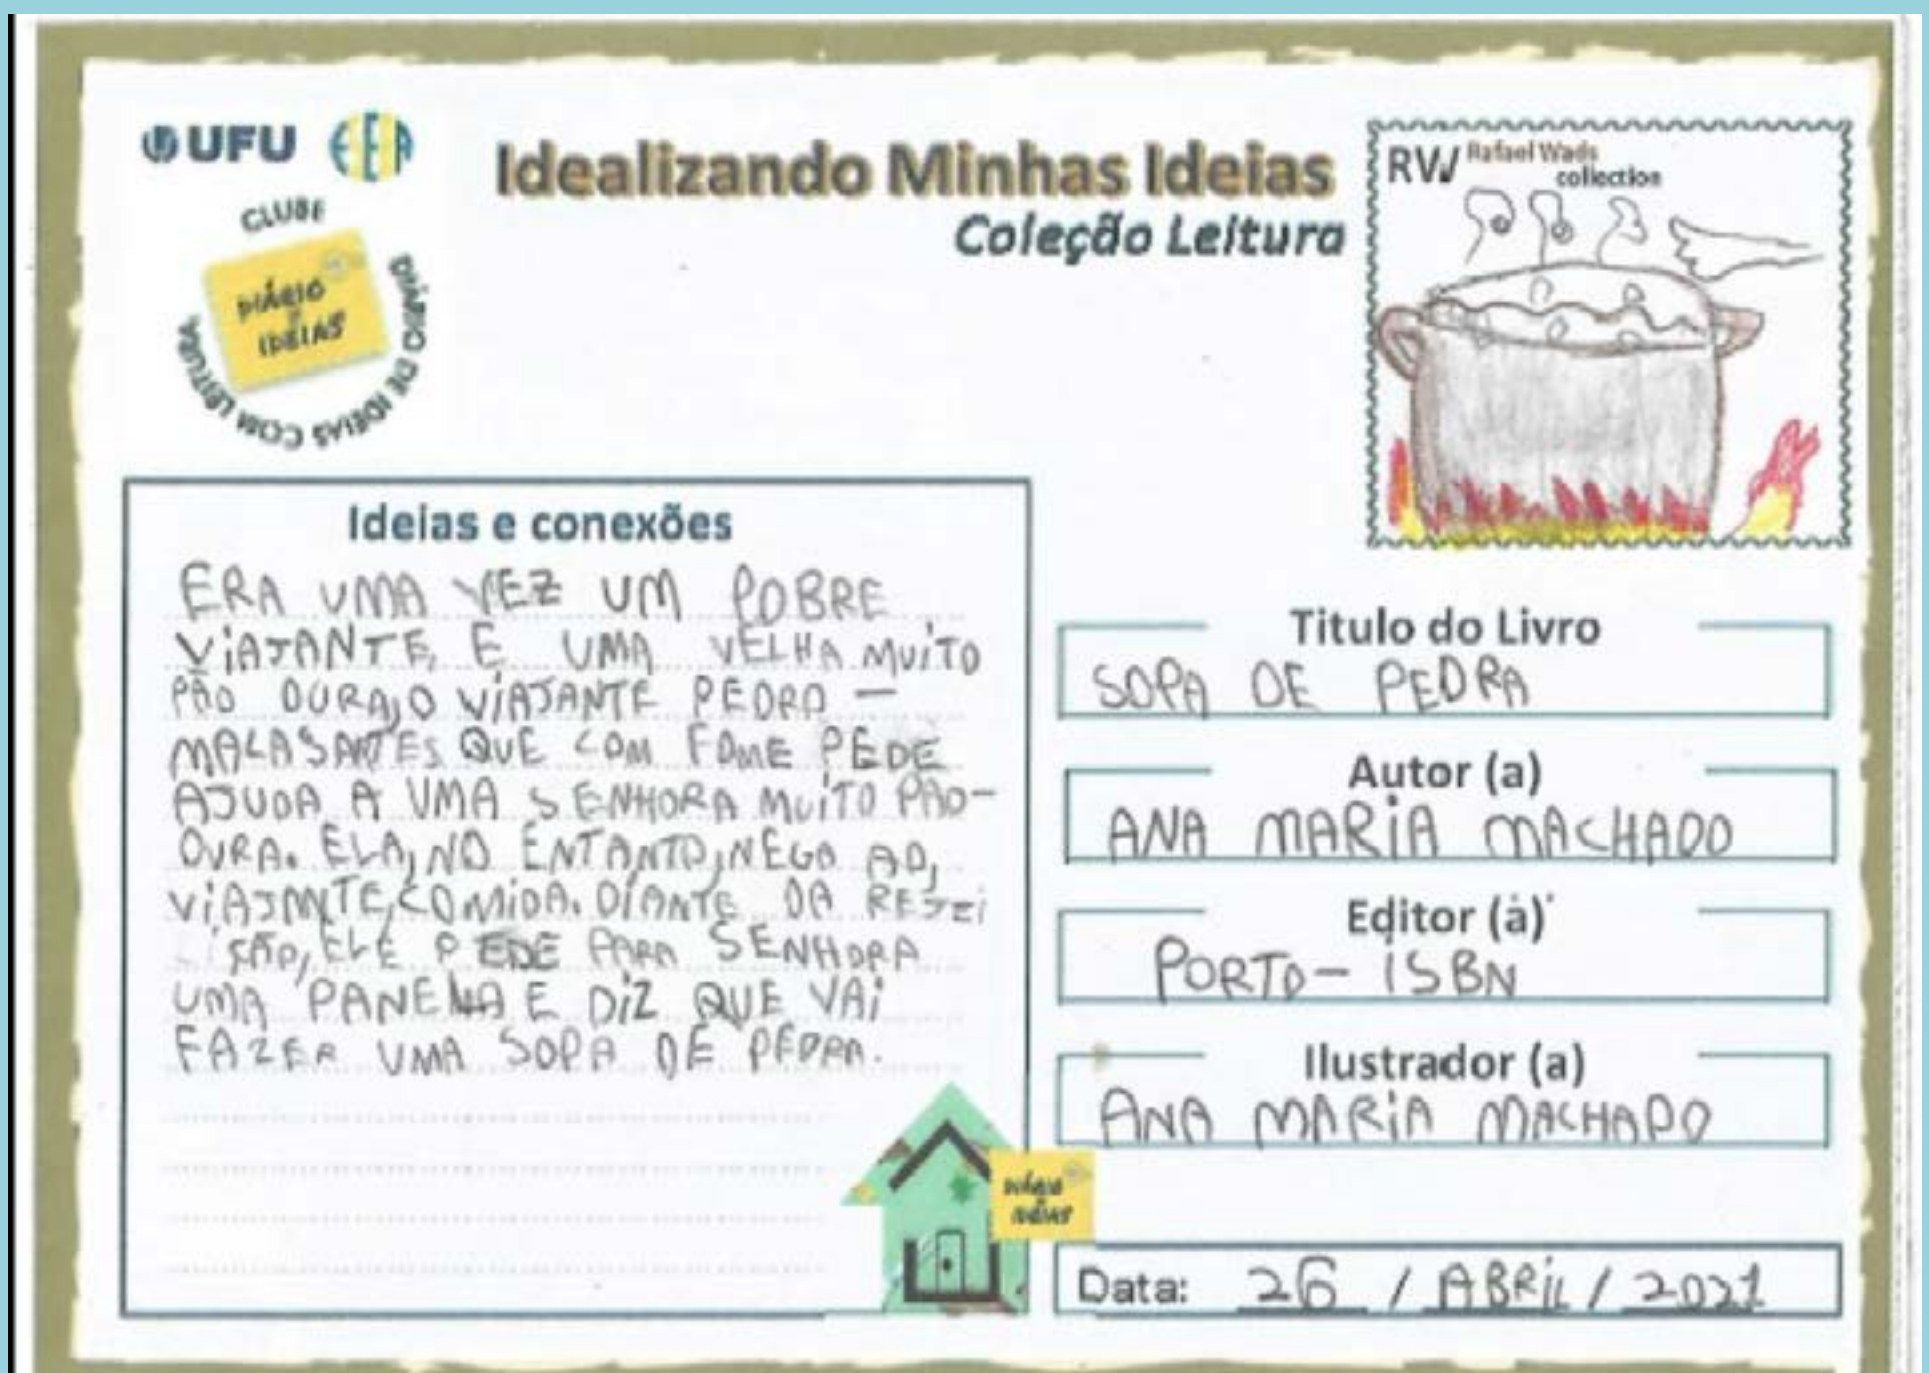 UFU
Idealizando Minhas Ideias
Coleção Leitura
RW Rafael Wads
collection
CLUBE
DIÁRIO DE IDEIAS COM LEITURA
DIÁRIO
IDEIAS
Ideias e conexões
ERA UMA VEZ UM POBRE
VIAJANTE, E UMA VELHA MUITO
PÃO DURA, O VIAJANTE PEDRO –
MALASARTES QUE COM FOME PEDE
AJUDA A UMA SENHORA MUITO PÃO-
DURA. ELA, NO ENTANTO, NEGO AO,
VIAJANTE, COMIDA. DIANTE DA REJEI
ÇÃO, ELE PEDE PARA SENHORA
UMA PANELA E DIZ QUE VAI
FAZER UMA SOPA DE PEDRA.
Titulo do Livro
SOPA DE PEDRA
Autor (a)
ANA MARIA MACHADO
Editor (a)
PORTO – ISBN
Ilustrador (a)
ANA MARIA MACHADO
Data: 26 / ABRIL / 2021